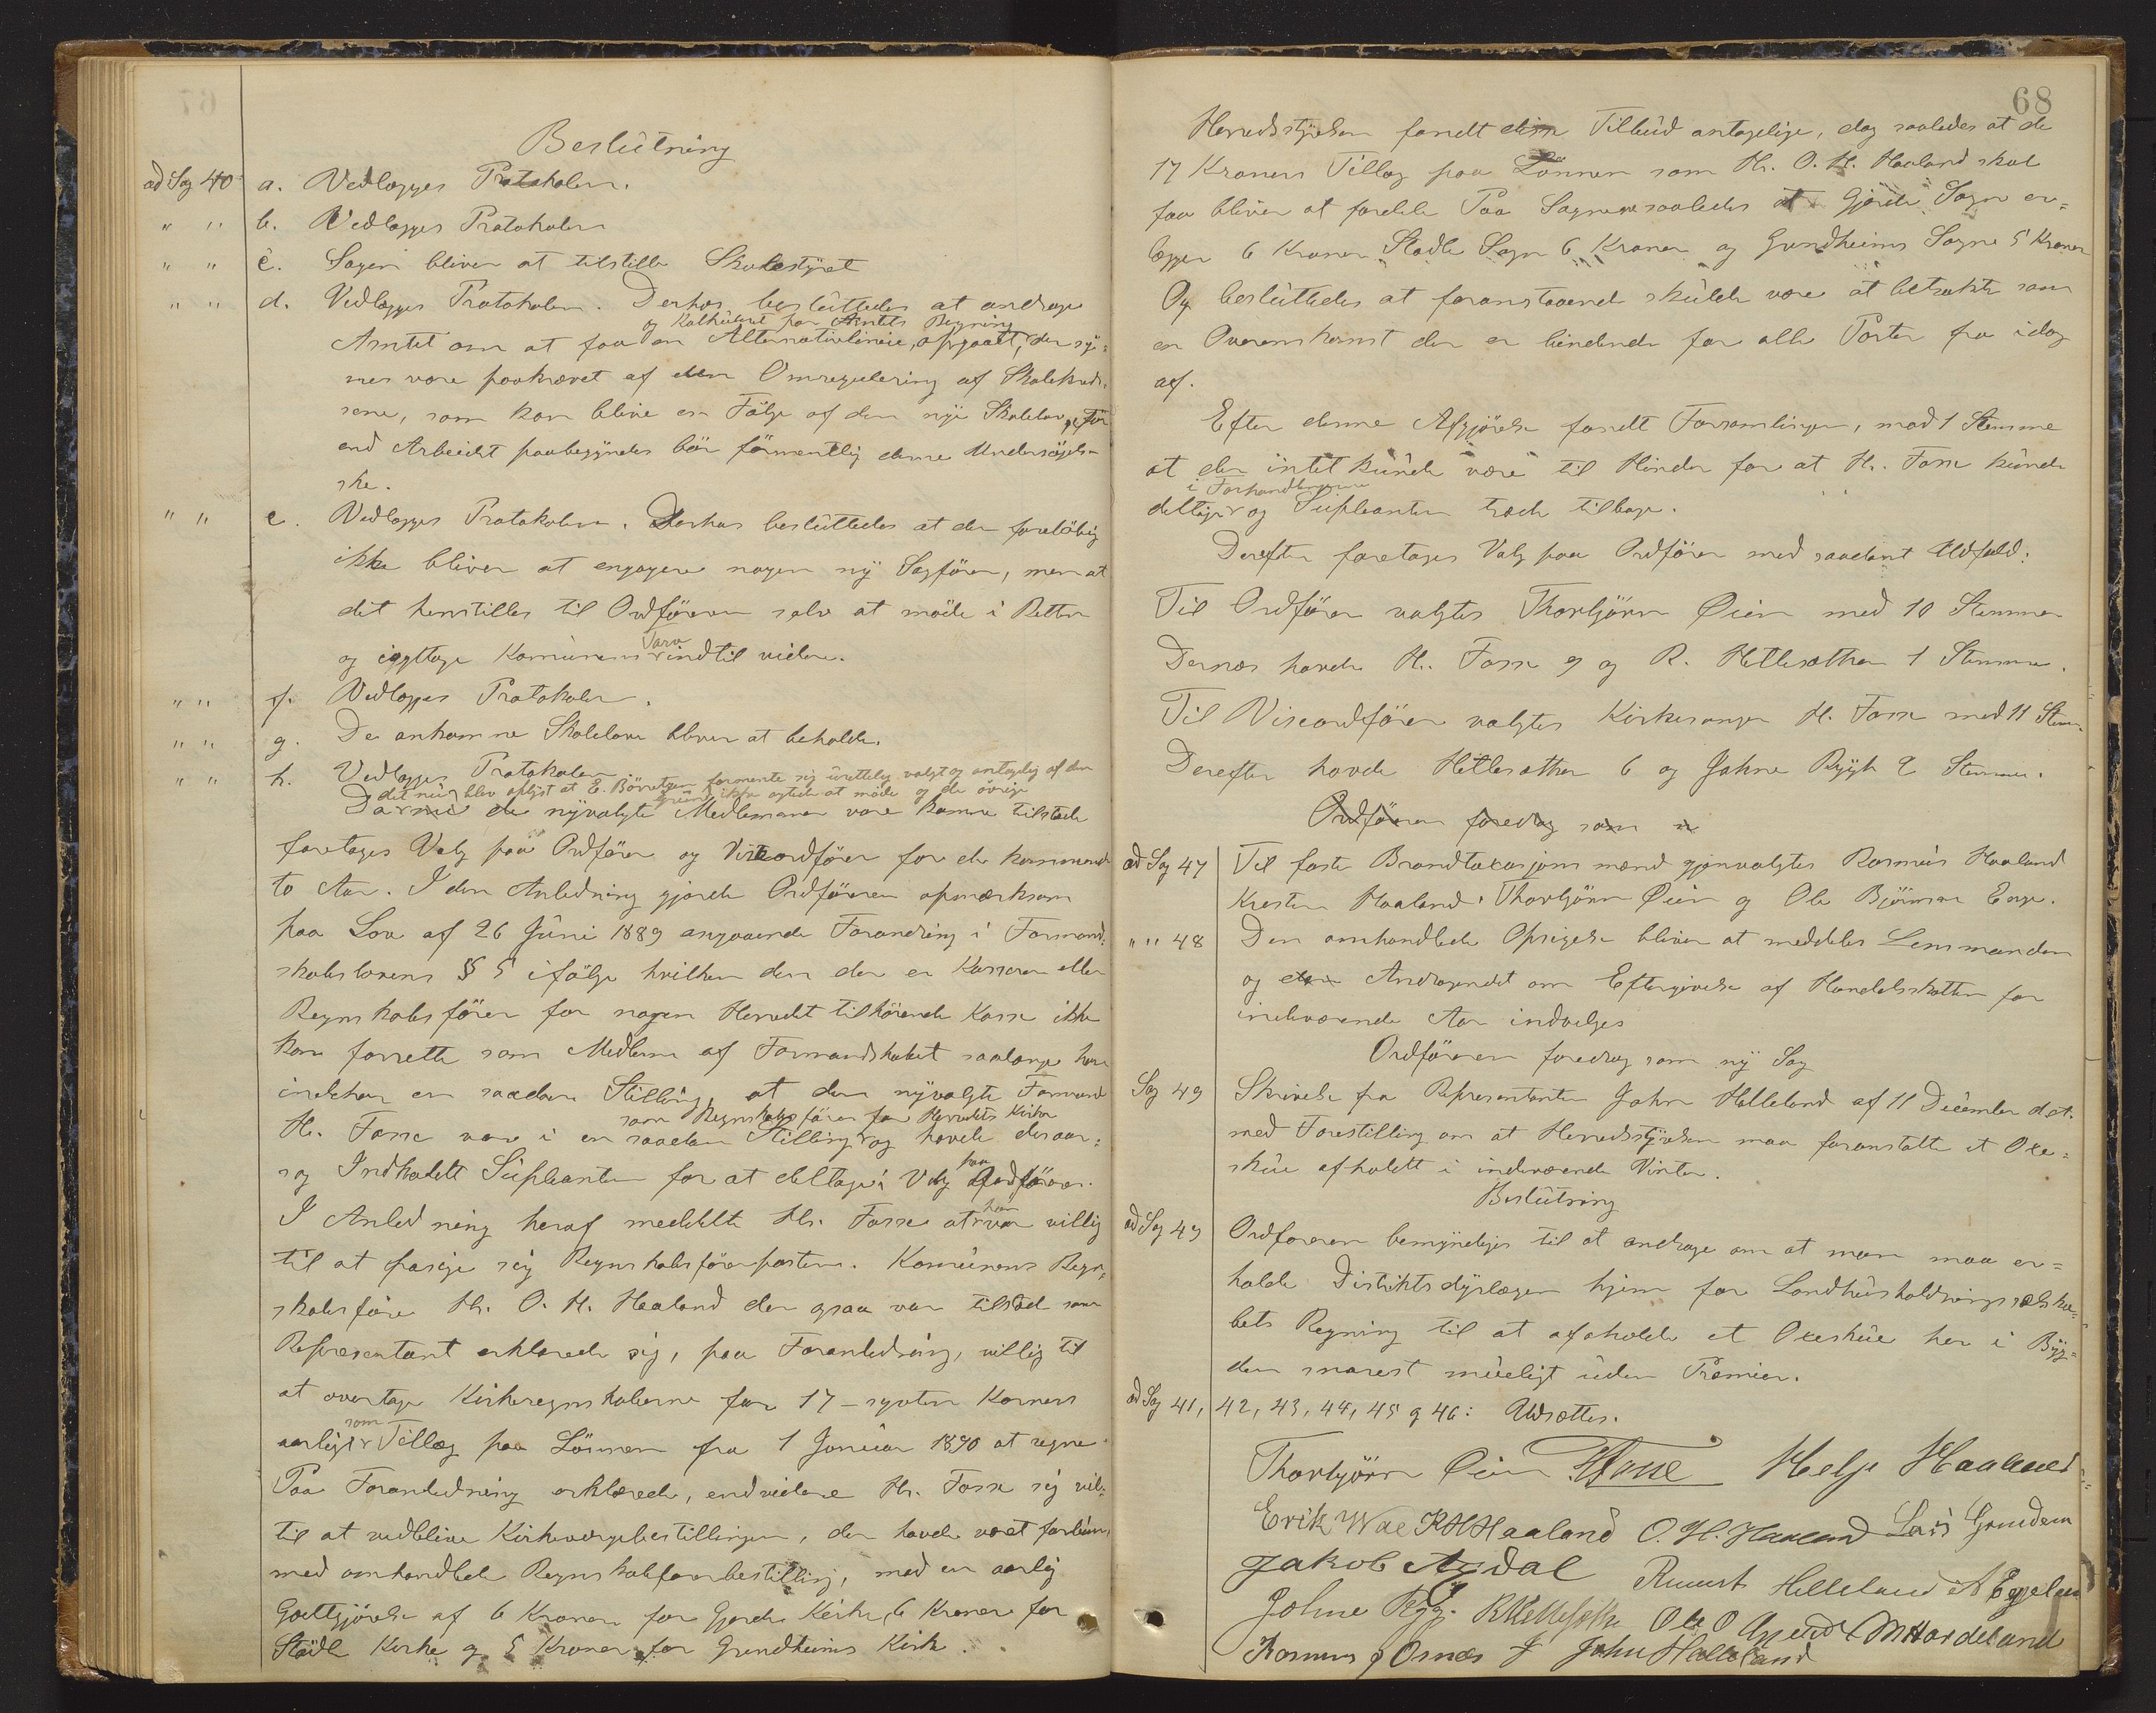 Beslutning
ad Sag 40 a. Vedlægges Protokolen.
" " b. Vedlægges Protokolen
" " c. Sagen bliver at tilstille Skolestyret
" " d. Vedlægges Protokolen. Derhos besluttedes at andrage
og Kalkuleret for Amtets Regning
Amtet om at faa en Alternativlinie, opgaaet, der sy=
nes være paakrævet af den Omregulering af Skolekred-
sene, som kan blive en Følge af den nye Skolelov, før
end Arbeidet paabegyndes bør førmentlig denne Undersøgels-
ske.
" " e. Vedlægges Protokolen. Derhos besluttedes at der foreløbig
ikke bliver at engagere nogen ny Sagfører, men at
det henstilles til Ordføreren selv at møde i Retten
og iagttage Komunens Tarv indtil videre.
" " f. Vedlægges Protokolen.
" " g. De ankomne Skolelove bliver at beholde.
" " h. Vedlægges Protokolen
det nu blev oplyst at E. Børretzen formente sig urettelig valgt og antagelig af den
Grund ikke agtede at møde og de øvrige
Da nu de nyvalgte Medlemmer vare komne tilstede
foretages Valg paa Ordfører og Viseordfører for de kommende
to Aar. I den Anledning gjorde Ordføreren opmærksom
paa Lov af 26 Juni 1889 angaaende Forandring i Formand-
skabslovens § 5 ifølge hvilken den der er Kasserer eller
Regnskabsfører for nogen Herredet tilhørende Kasse ikke
kan forrette som Medlem af Formandskabet saalænge han
indehar en saadan Stilling, at den nyvalgte Formand
som Regnskabsfører for Herredets Kirker
H. Fosse var i en saadan Stilling og havde desaar=
sag Indkaldt Supleanten for at deltage i Valg paa Ordfører.
I Anledning heraf meddelte Hr. Fosse at han var villig
til at frasige sig Regnskabsførerposten. Komunens Regn-
skabsfører Hr. O. H. Haaland der ogsaa var tilsted som
Repræsentant erklærede sig, paa Foranledning, villig til
at overtage Kirkeregnskaberne for 17 - sytten Kroners
som
aarligt Tillæg paa Lønnen fra 1 Januar 1890 at regne
Paa Foranledning erklærede, endvidere Hr. Fosse sig vil-
til at vedblive Kirkeværgebestillingen, der havde været forbun-
med omhandlede Regnskabførerbestilling, mod en aarlig
Godtgjørelse af 6 Kroner for Gjerde Kirke, 6 Kroner for
Stødle Kirke og 5 Kroner for Grindheims Kirke.
68
Herredsstyrelsen fandt disse Tilbud antagelige, dog saaledes at de
17 Kroners Tillæg paa Lønnen som Hr. O. H. Haaland skal
faa bliver at fordele Paa Sognene saaledes at Gjerde Sogn er=
lægger 6 Kroner Stødle Sogn 6 Kroner og Grindheims Sogne 5 Kroner
Og besluttedes at foranstaaende skulde være at betrakte som
en Overenskomst der er bindende for alle Parter fra idag
af.
Efter denne Afgjørelse fandt Forsamlingen, mod 1 Stemme
at der intet kunde være til Hinder for at H. Fosse kunde
i Forhandlingerne
deltage og Supleanten træde tilbage.
Derefter foretages Valg paa Ordfører med saadant Udfald:
Til Ordfører valgtes Thorbjørn Øien med 10 Stemmer
Dernæs havde H. Fosse 9 og R. Hettesæther 1 Stemme.
Til Viseordfører valgtes Kirkesanger H. Fosse med 11 Stem-
Derefter havde Hettesæther 6 og Johne Rygh 2 Stemmer.
Ordføreren foredrog som n
ad Sag 47 Til faste Brandtaxasjonsmænd gjenvalgtes Rasmus Haaland
Kresten Haaland, Thorbjørn Øien og Ole Bjørnsen Enge.
" " 48 Den omhandlede Opsigelse bliver at meddeles Lensmanden
og Andragendet om Eftergivelse af Handelsskatten for
indeværende Aar indvelges
Ordføreren foredrog som ny Sag
Sag 49 Skrivelse fra Representanten John Helleland af 11 December d.A.
med Forestilling om at Herredsstyrelsen maa foranstalte et Oxe=
skue afholdt i indeværende Vinter.
Beslutning
ad Sag 49 Ordføreren bemyndiges til at andrage om at man maa er=
holde Distriktsdyrlægen hjem for Landhusholdningsselska-
bets Regning til at afholde et Oxeskue her i Byg=
den snarest mueligt uden Præmier.
ad Sag 41, 42, 43, 44, 45 og 46: Udsættes.
Thorbjørn Øien HFosse Helge Haaland
Erik Wae KHHaaland O. H. Haaland Lars Grindem
Jakob Aydal Rasmus Helleland A Eggeland
Johne Rygg. RHettesæthe Ole O MHardeland
Rasmus J Osnæs John Helleland